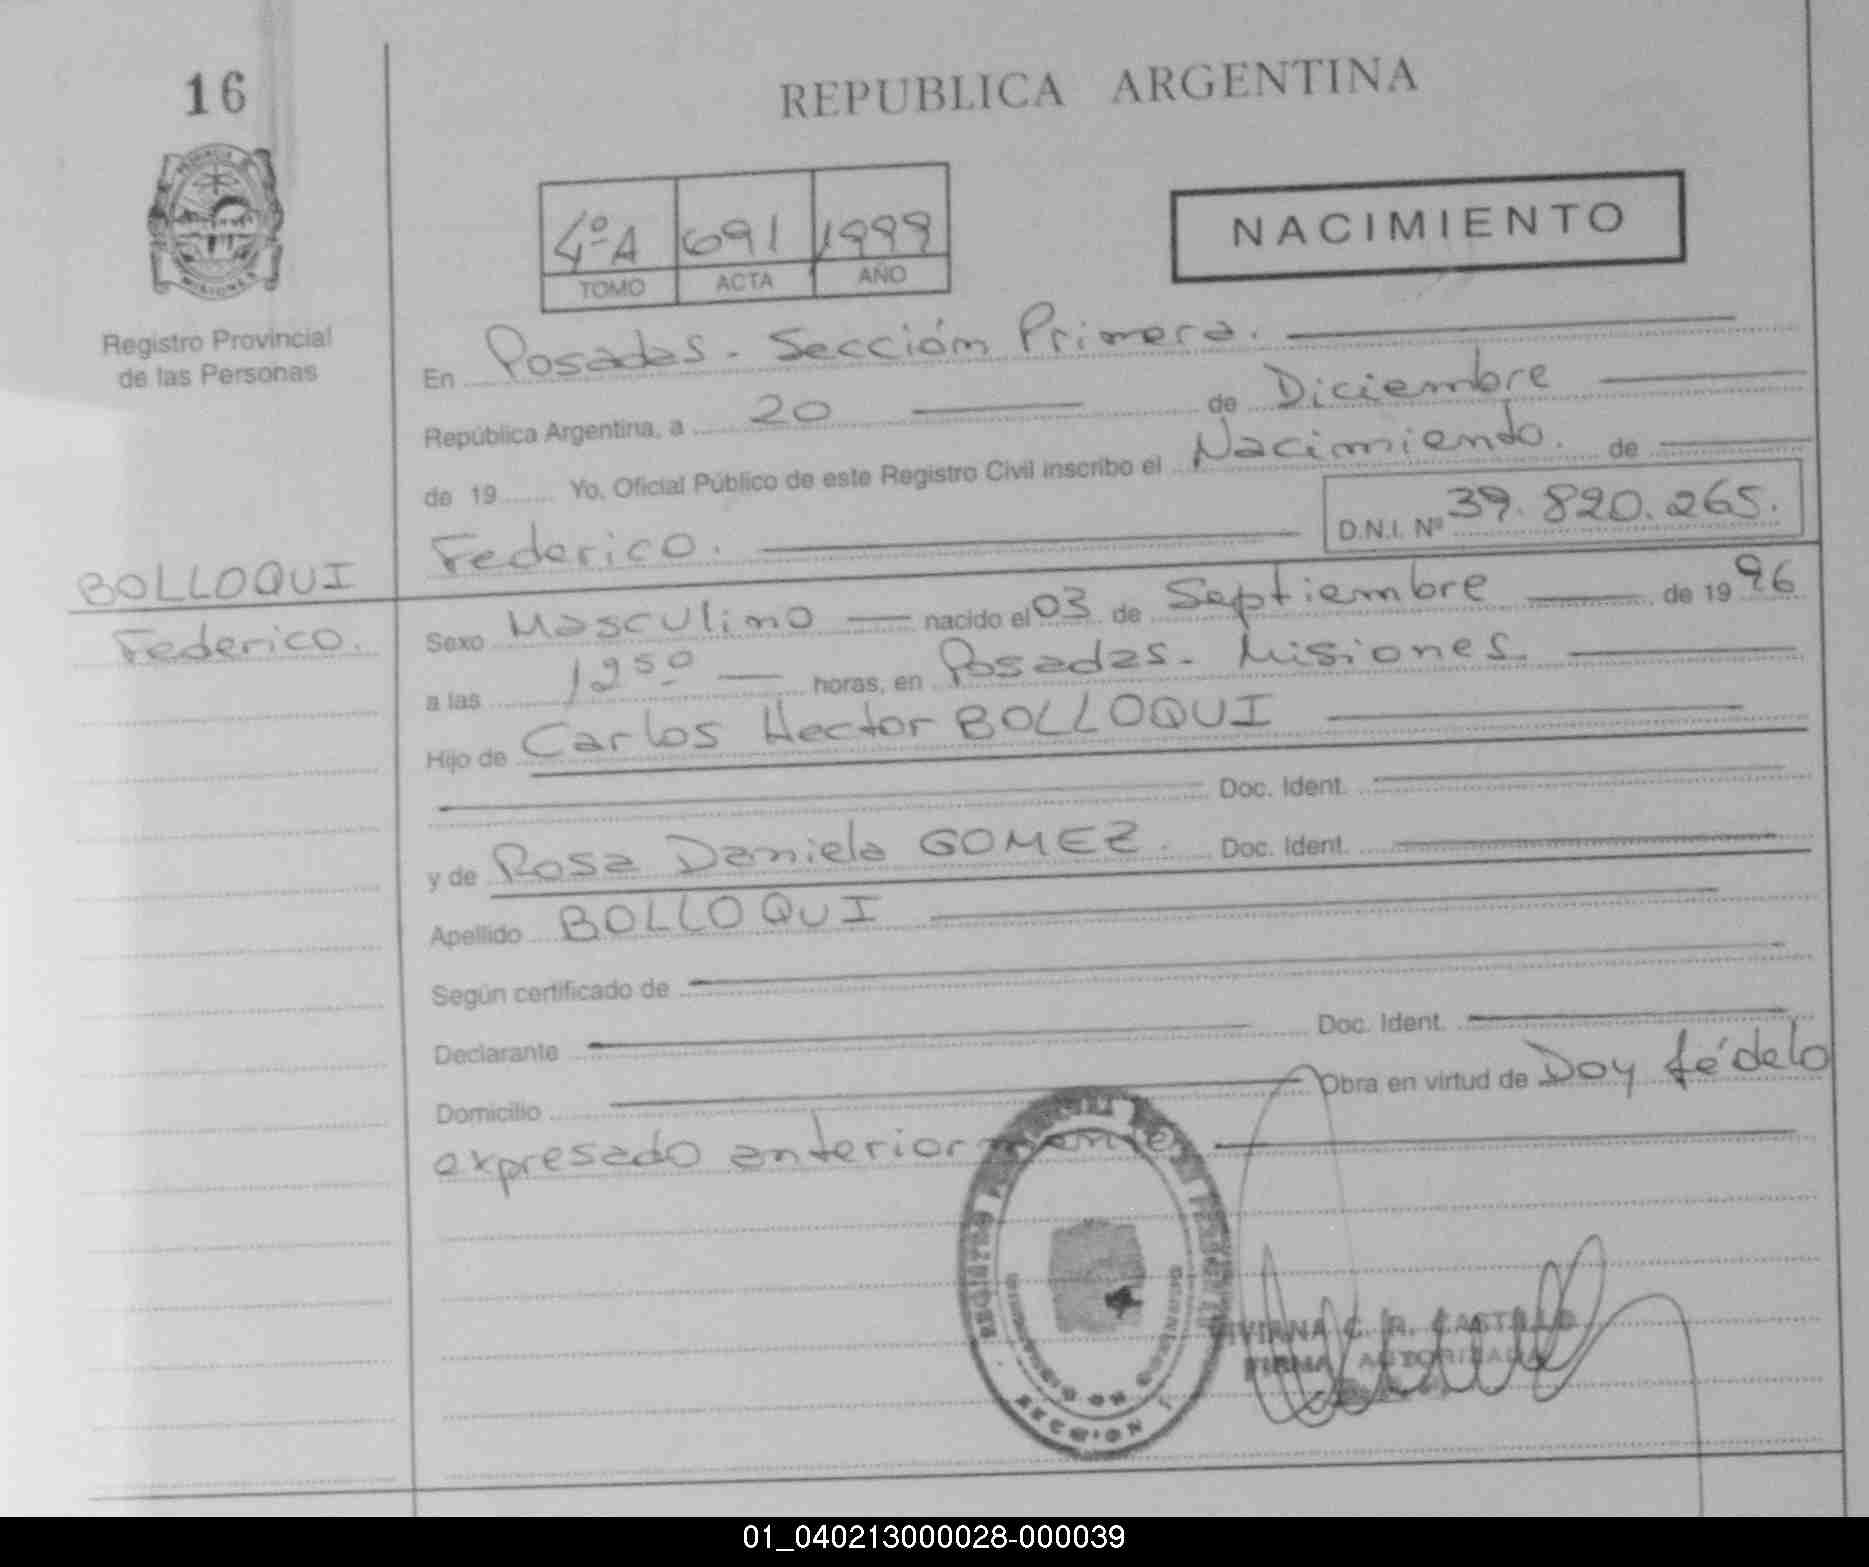 16
REPUBLICA ARGENTINA
4º A 691 1999
TOMO ACTA AÑO
NACIMIENTO
Registro Provincial
de las Personas
En Posadas - Sección Primera.
República Argentina, a 20 de Diciembre
de 19 Yo, Oficial Público de este Registro Civil inscribo el Nacimiento. de
Federico. D.N.I. Nº 39.820.265.
BOLLOQUI
Federico.
Sexo Masculino nacido el 03 de Septiembre de 1996
a las 12 50 horas, en Posadas - Misiones.
Hijo de Carlos Hector BOLLOQUI
Doc. Ident.
y de Rosa Daniela GOMEZ. Doc. Ident.
Apellido BOLLOQUI
Según certificado de
Declarante Doc. Ident.
Domicilio Obra en virtud de Doy fé de lo
expresado anteriormente
REGISTRO
SECCION 1ª
VIVIANA C. R. CASTILLO
FIRMA AUTORIZADA
01_040213000028-000039